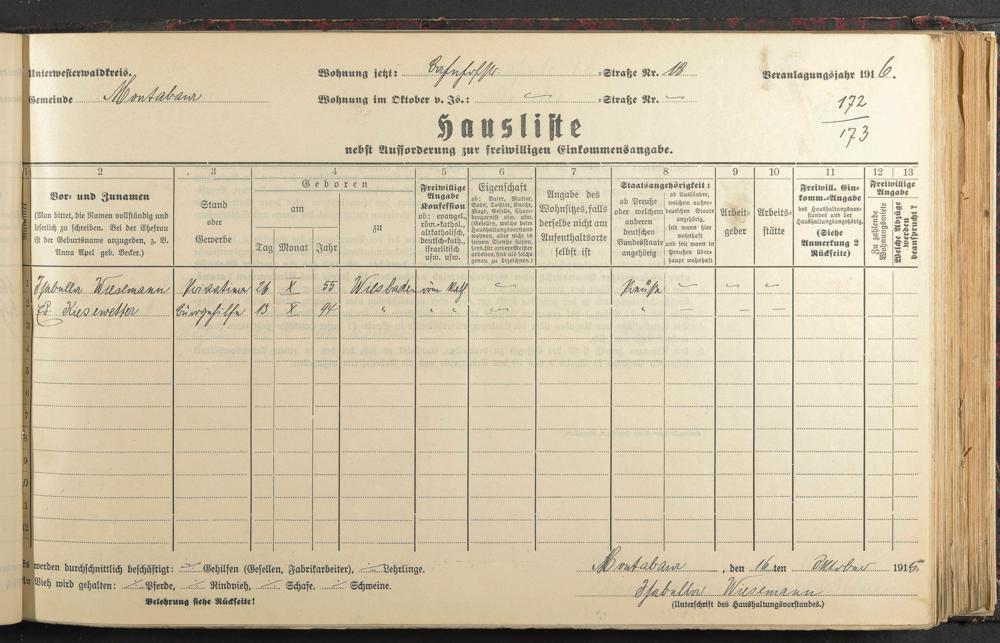 Unterwesterwaldkreis. Wohnung jetzt: Bahnhofstr =Straße Nr. 18 Veranlagungsjahr 1916.
Gemeinde Montabaur Wohnung im Oktober v. Js.: =Straße Nr. 172
173
Hausliste
nebst Aufforderung zur freiwilligen Einkommensangabe.
1 2 3 4 5 6 7 8 9 10 11 12 13
Vor- und Zunamen
(Man bittet, die Namen vollständig und
leserlich zu schreiben. Bei der Ehefrau
ist der Geburtsname anzugeben, z. B.
Anna Apel geb. Becker.)
Stand
oder
Gewerbe
Geboren
am
zu
Tag Monat Jahr
Freiwillige
Angabe
Konfession
ob: evangel.,
röm.-kathol.,
altkatholisch,
deutsch-kath.,
israelitisch
usw. usw.
Eigenschaft
ob: Vater, Mutter,
Sohn, Tochter, Knecht,
Magd, Geselle,
Angabe des
Wohnsitzes, falls
derselbe nicht am
Aufenthaltsorte
selbst ist
Staatsangehörigkeit:
ob Preuße
oder welchem
anderen
deutschen
Bundesstaate
angehörig
ob Ausländer,
welchem außer-
deutschen Staate
angehörig,
seit wann hier
wohnhaft
und seit wann in
Preußen über-
haupt wohnhaft
Arbeit-
geber
Arbeits-
stätte
Freiwill. Ein-
komm.-Angabe
des Haushaltungsvor-
standes und der
Haushaltungsangehörig.
(Siehe
Anmerkung 2
Rückseite)
Freiwillige
Angabe
Zu zahlende
Wohnungsmiete
Welche Abzüge
werden
beansprucht?
1 Isabella Wiesemann Privatiere 26 X 55 Wiesbaden röm Kath — Preuße — — —
2 Ed. Kiesewetter Bürogehilfe 13 X 94 " " " — " — — —
3
4
5
6
7
8
9
10
11
12
Es werden durchschnittlich beschäftigt: Gehilfen (Gesellen, Fabrikarbeiter), Lehrlinge.
An Vieh wird gehalten: Pferde, Rindvieh, Schafe. Schweine.
Belehrung siehe Rückseite!
Montabaur, den 16 ten Oktober 1915.
Isabella Wiesemann
(Unterschrift des Haushaltungsvorstandes.)